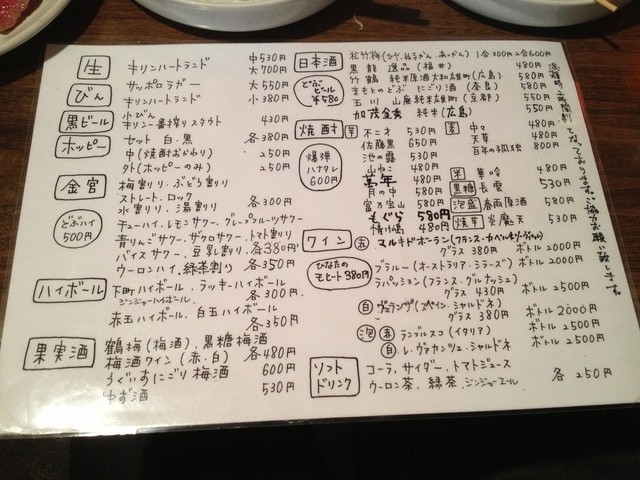 生 キリンハートランド 中530円
大700円
びん サッポロラガー 大550円
キリンハートランド 小380円
黒ビール 小びん
キリン一番搾りスタウト 430円
ホッピー セット 白.黒 各380円
中(焼酎おかわり) 250円
外(ホッピーのみ) 250円
金宮 梅割り.ぶどう割り
ストレート.ロック
水割り.湯割り 各300円
どぶハイ 500円
チューハイ.レモンサワー.グレープフルーツサワー
青りんごサワー.ザクロサワー.トマト割り
バイスサワー.豆乳割り.各380円
ウーロンハイ.緑茶割り 各350円
ハイボール 下町ハイボール.ラッキーハイボール
ジンジャーハイボール 各300円
赤玉ハイボール.白玉ハイボール
各350円
果実酒 鶴梅(梅酒).黒糖梅酒
梅酒ワイン(赤.白) 各480円
うぐいすにごり梅酒 600円
ゆず酒 530円
日本酒 松竹梅(ひや.ぬるかん.あつかん) 1合300円 2合600円
黒龍 逸品(福井) 480円
どぶビール ¥580
竹鶴 純米原酒 大和雄町(広島) 580円
きもとのどぶ にごり酒(奈良) 580円
玉川 山廃純米雄町(京都) 550円
加茂金秀 純米(広島) 550円
焼酎 芋 不二才 530円
佐藤黒 650円
池の露 530円
山ねこ 480円
萬年 480円
月の中 580円
富乃宝山 580円
もぐら 580円
情け嶋 480円
爆弾ハナタレ 600円
麦 中々 480円
天草 480円
百年の孤独 800円
米 480円
黒糖 長雲 530円
泡盛 春雨 原酒 580円
焼芋 炎魔天 530円
ワイン 赤 マルキドボーラン(フランス・カベルネソーヴィニヨン)
グラス 380円 ボトル 2000円
ひなたのモヒート380円
ブラルー(オーストラリア・シラーズ) ボトル 2000円
ラパッション(フランス・グルナッシュ)
グラス 430円 ボトル 2500円
白 (スペイン.シャルドネ)
グラス 380円 ボトル 2000円
泡 赤 ランブルスコ(イタリア) ボトル 2500円
白 レ.ヴァカンツェ.シャルドネ ボトル 2500円
ソフトドリンク コーラ.サイダー.トマトジュース
ウーロン茶.緑茶.ジンジャーエール 各250円
となっております。ご協力お願い致します。